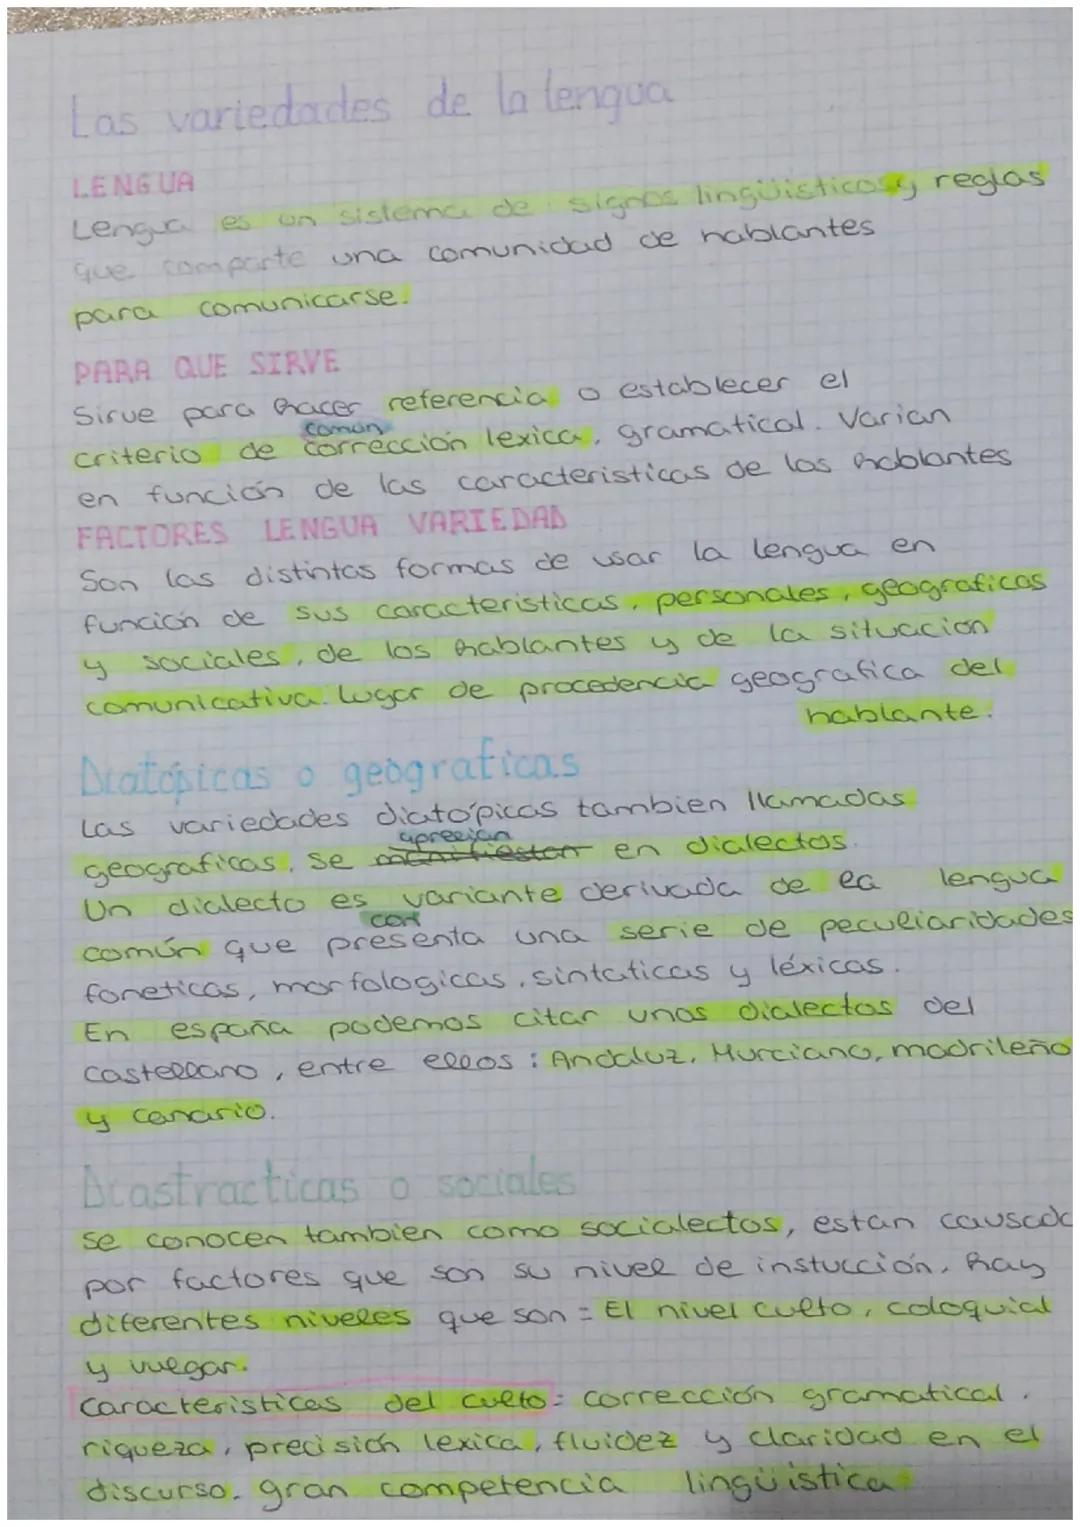 Las variedades de la lengua
LENGUA
Lengua es un sistema de signos lingüisticos y reglas
que comparte una comunidad de hablantes
para comunicarse.
PARA QUE SIRVE
Sirve para hacer referencia o establecer el
comun
criterio de corrección lexica, gramatical. Varian
en función de las caracteristicas de los hablantes
FACTORES LENGUA VARIEDAD
Son las distintas formas de usar la lengua en
función de sus caracteristicas, personales, geograficas
y sociales, de los hablantes y de la situacion
comunicativa. Lugar de procedencia geografica del
hablante.
Diatópicas o geograficas
Las variedades diatópicas tambien llamadas
geograficas, se manifiestan en dialectos.
Un dialecto es variante derivada de la lengua
común que presenta una serie de peculiaridades
foneticas, morfologicas, sintaticas y léxicas.
En españa podemos citar unos dialectos del
castellano, entre ellos: Andaluz, Murciano, madrileño
y canario.
Diastracticas o sociales
se conocen tambien como socialectos, estan
por factores que son su nivel de instucción, hay
diferentes niveles que son = El nivel culto, coloquial
y vulgar.
Caracteristicas del culto: corrección gramatical.
riqueza, precisión lexica, fluidez y claridad en el
discurso. gran competencia lingüistica